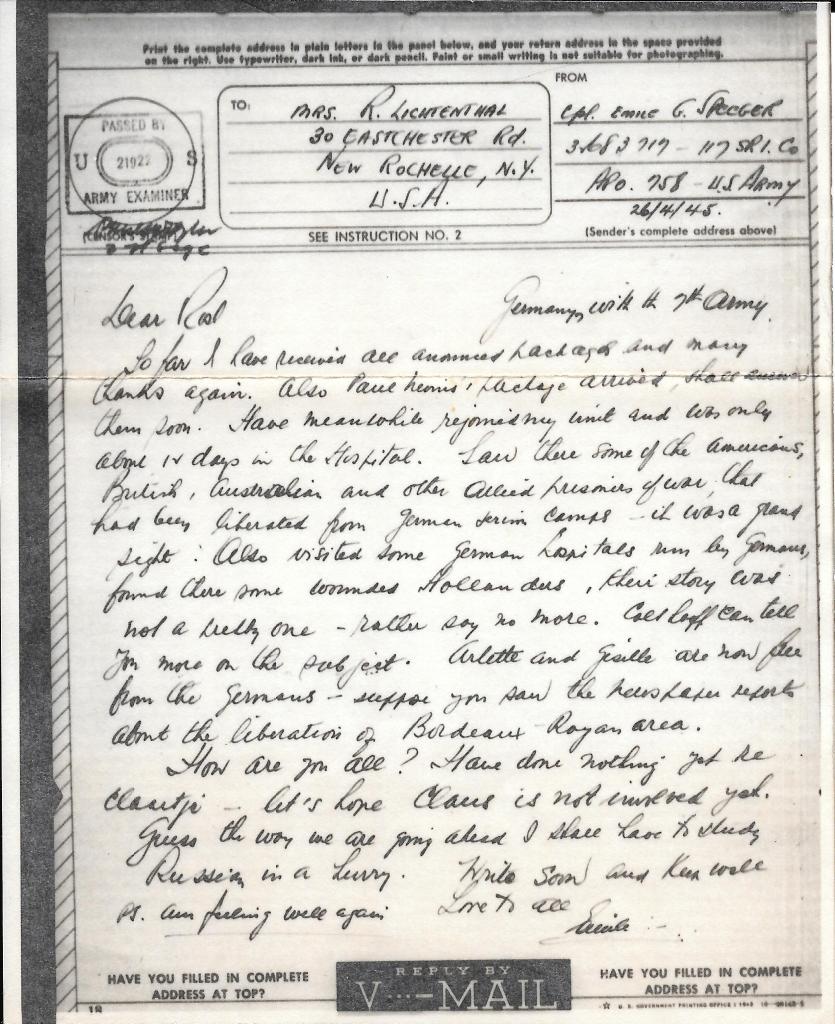 Print the complete address in plain letters in the panel below, and your return address in the space provided
on the right. Use typewriter, dark ink, or dark pencil. Faint or small writing is not suitable for photographing.
FROM
TO:
MRS. R. LICHTENTHAL
30 EASTCHESTER Rd.
NEW ROCHELLE, N.Y.
U.S.A.
Cpl. Emile G. SPEEGER
- 117 SRI. Co
APO. 758 - U.S Army
26/4/45.
(Sender's complete address above)
PASSED BY
U 21922 S
ARMY EXAMINER
(CENSOR'S STAMP)
SEE INSTRUCTION NO. 2
Germany, with th 7th Army.
Dear
So far I have received all announced packages and many
thanks again. Also package arrived, shall answer
them soon. Have meanwhile rejoined my unit and was only
about 12 days in the Hospital. Saw there some of the Americans,
British, Australian and other Allied prisoners of war, that
had been liberated from German camps - it was a grand
sight! Also visited some German hospitals run by Germans,
found there some wounded Hollanders, their story was
not a pretty one - rather say no more. can tell
you more on the subject. Arlette and Giselle are now free
from the Germans - suppose you saw the newspaper reports
about the liberation of Bordeaux - Royan area.
How are you all? Have done nothing yet re
- let's hope Claus is not involved yet.
Guess the way we are going ahead I shall have to study
Russian in a hurry. Write soon and keep well
PS. am feeling well again Love to all
Emile
HAVE YOU FILLED IN COMPLETE
ADDRESS AT TOP?
REPLY BY
V···—MAIL
HAVE YOU FILLED IN COMPLETE
ADDRESS AT TOP?
U. S. GOVERNMENT PRINTING OFFICE : 1943
18